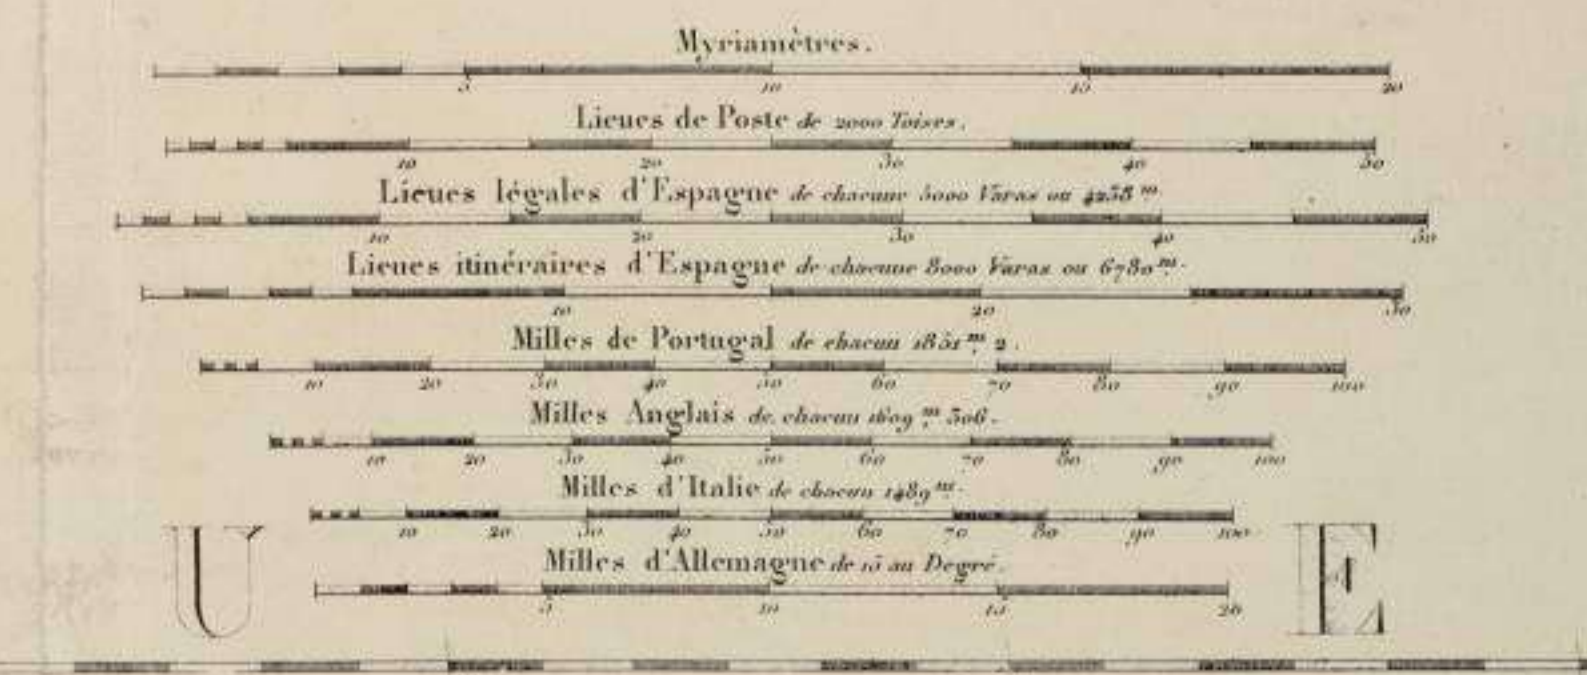 Myriamètres.
5 10 15 20
Lieues de Poste de 2000 Toises.
10 20 30 40 50
Lieues légales d'Espagne de chacune 5000 Varas ou 4238 m
10 20 30 40 50
Lieues itinéraires d'Espagne de chacune 8000 Varas ou 6780 m.
10 20 30
Milles de Portugal de chacun 1851 m. 2.
10 20 30 40 50 60 70 80 90 100
Milles Anglais de chacun 1609 m. 306.
10 20 30 40 50 60 70 80 90 100
Milles d'Italie de chacun 1489 m.
10 20 30 40 50 60 70 80 90 100
Milles d'Allemagne de 15 au Degré.
5 10 15 20
U E